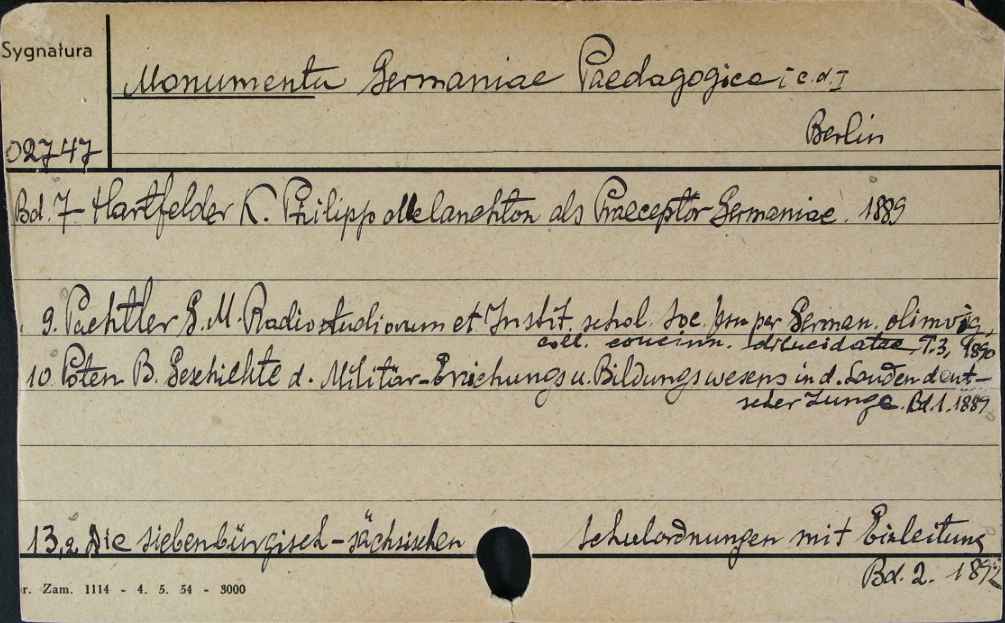 Sygnatura
Monumenta Germaniae Paedagogica [c.d.]
Berlin
02747
Bd. 7 Hartfelder K. Philipp Melanchton als Praeceptor Germaniae. 1889
9. Pachtler G. M. Radio studiorum et Instit. schol. Soc. Jesu per German. olim vig,
coll. concinn. dilucidatae, T. 3, 1890
10. Poten B. Geschichte d. Militär-Erziehungs u. Bildungswesens in d. Landen deut-
scher Zunge. Bd. 1. 1889
13,2 Die siebenbürgisch-sächsischen Schulordnungen mit Einleitung
Bd. 2. 1892
r. Zam. 1114 - 4. 5. 54 - 3000